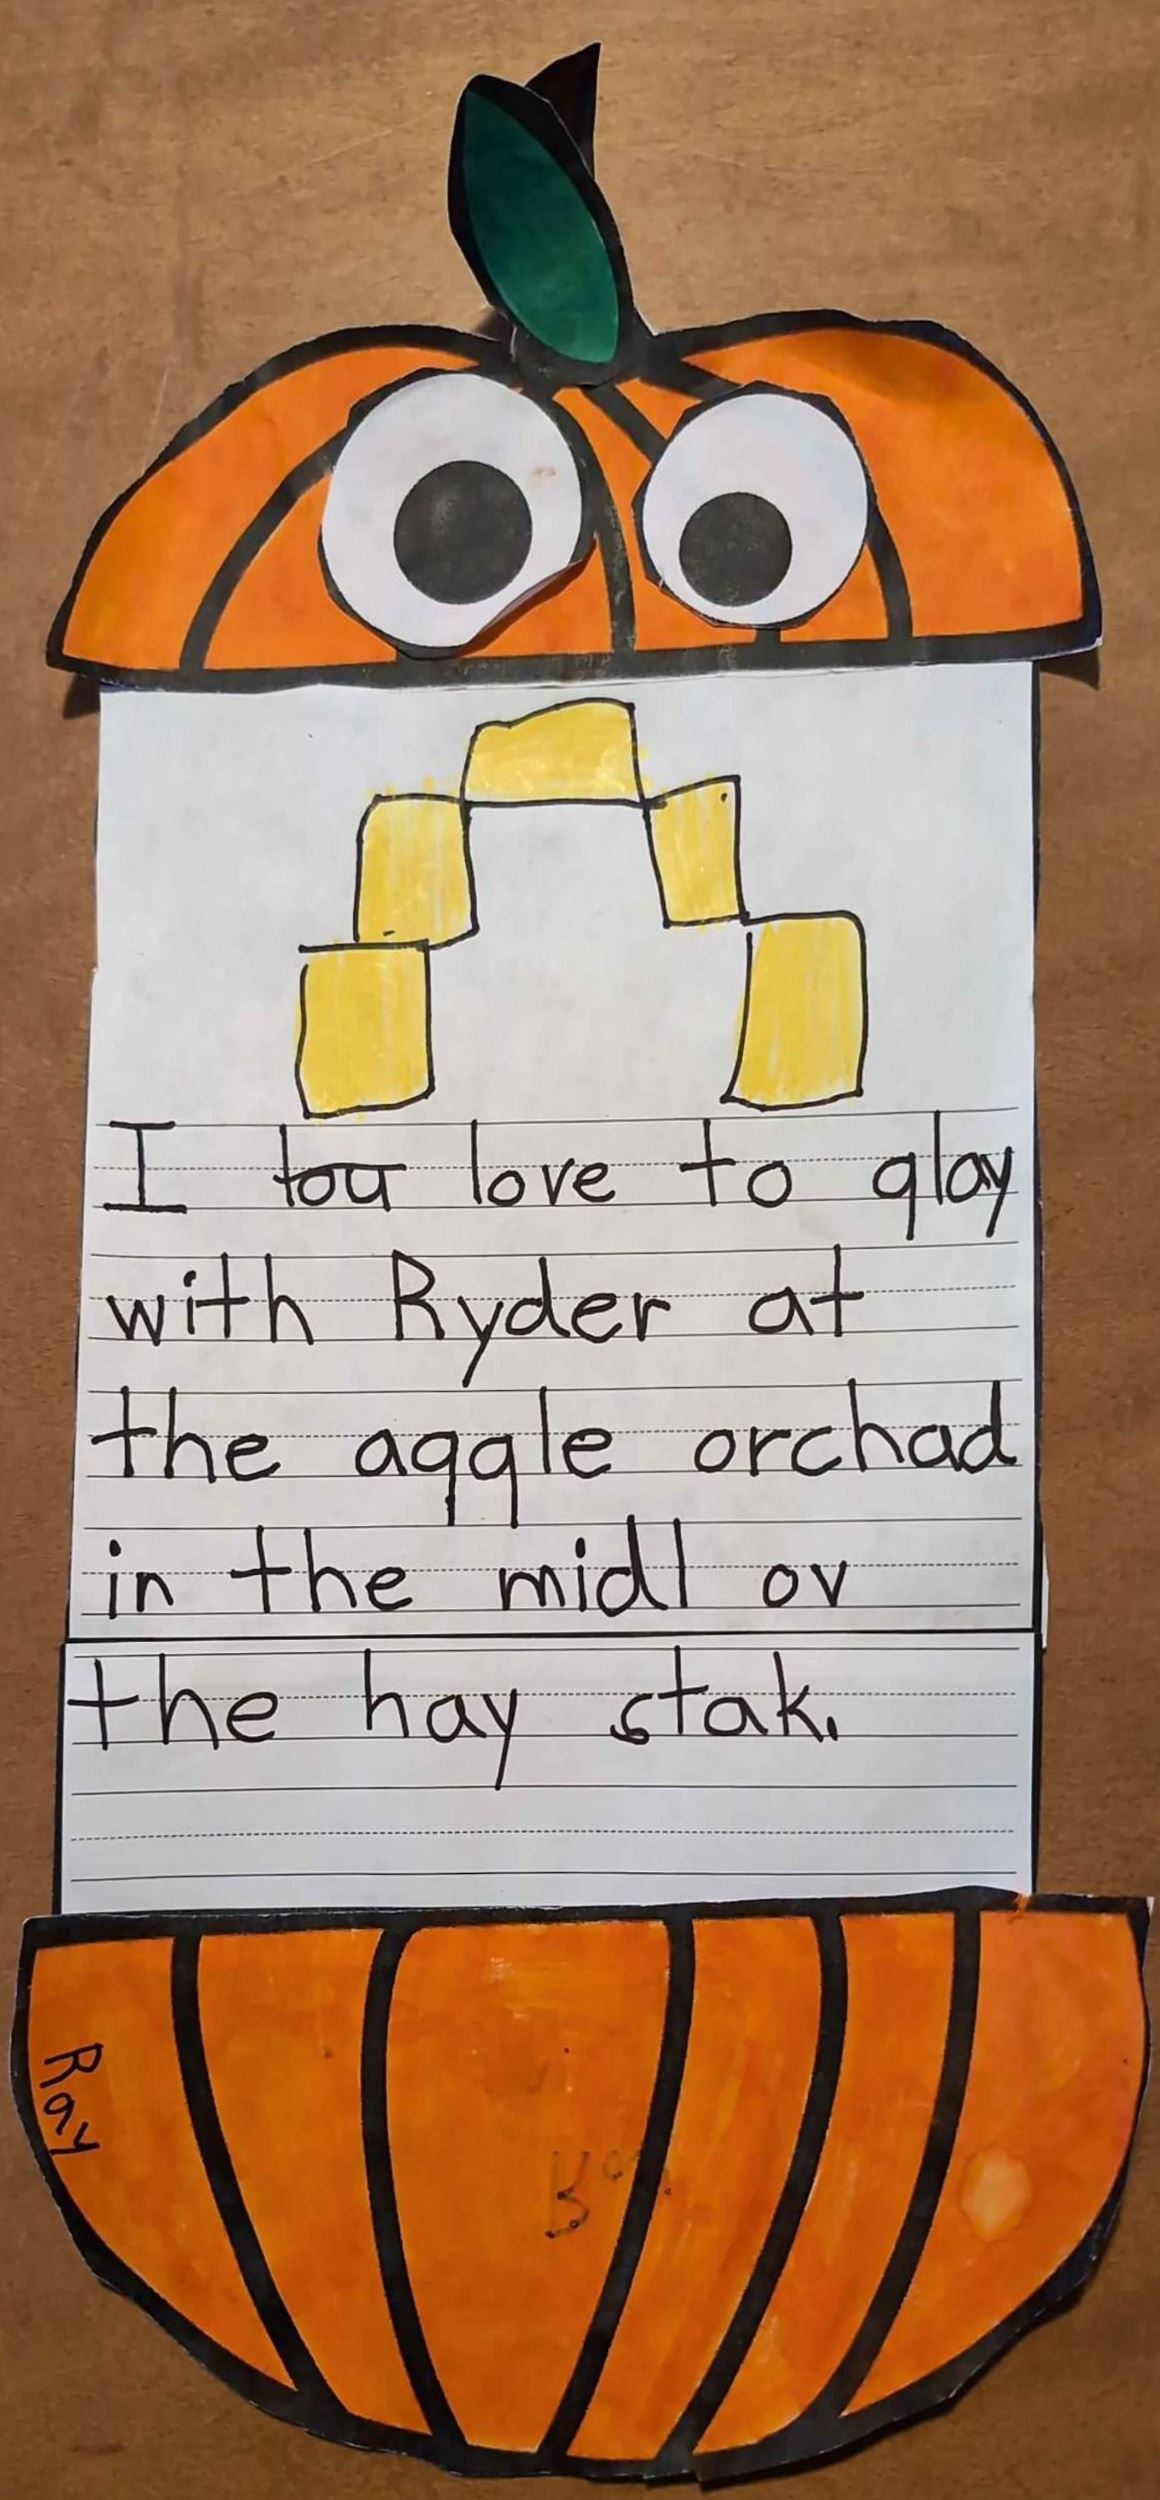 I love to qlay
with Ryder at
the aqqle orchad
in the midl ov
the hay stak.
Ray